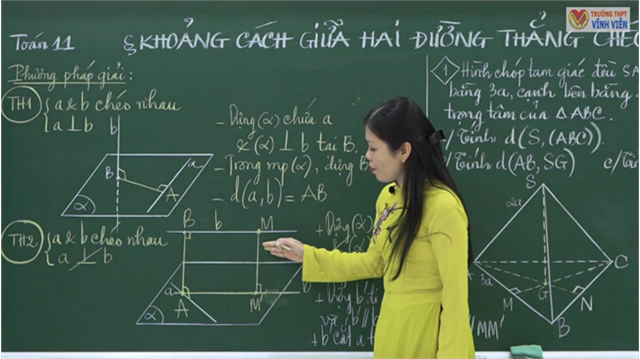 TRƯỜNG THPT
VĨNH VIỄN
Toán 11
§ KHOẢNG CÁCH GIỮA HAI ĐƯỜNG THẲNG CHÉO
Phương pháp giải:
TH1
a & b chéo nhau
a ⊥ b
b
B
A
a
α
- Dựng (α) chứa a
& (α) ⊥ b tại B.
- Trong mp(α), dựng B
- d(a,b) = AB
TH2
a & b chéo nhau
a ⊥̸ b
B
b
M
a
A
M'
α
+ Dựng (α)
+ Dựng b' đi
và b' //
+ b cắt a t
//MM'
1
Hình chóp tam giác đều SA
bằng 3a, cạnh bên bằng
trọng tâm của ΔABC.
a/ Tính d(S,(ABC)).
b/ Tính d(AB, SG)
c/ Tín
S
2a
A
3a
C
M
G
N
B